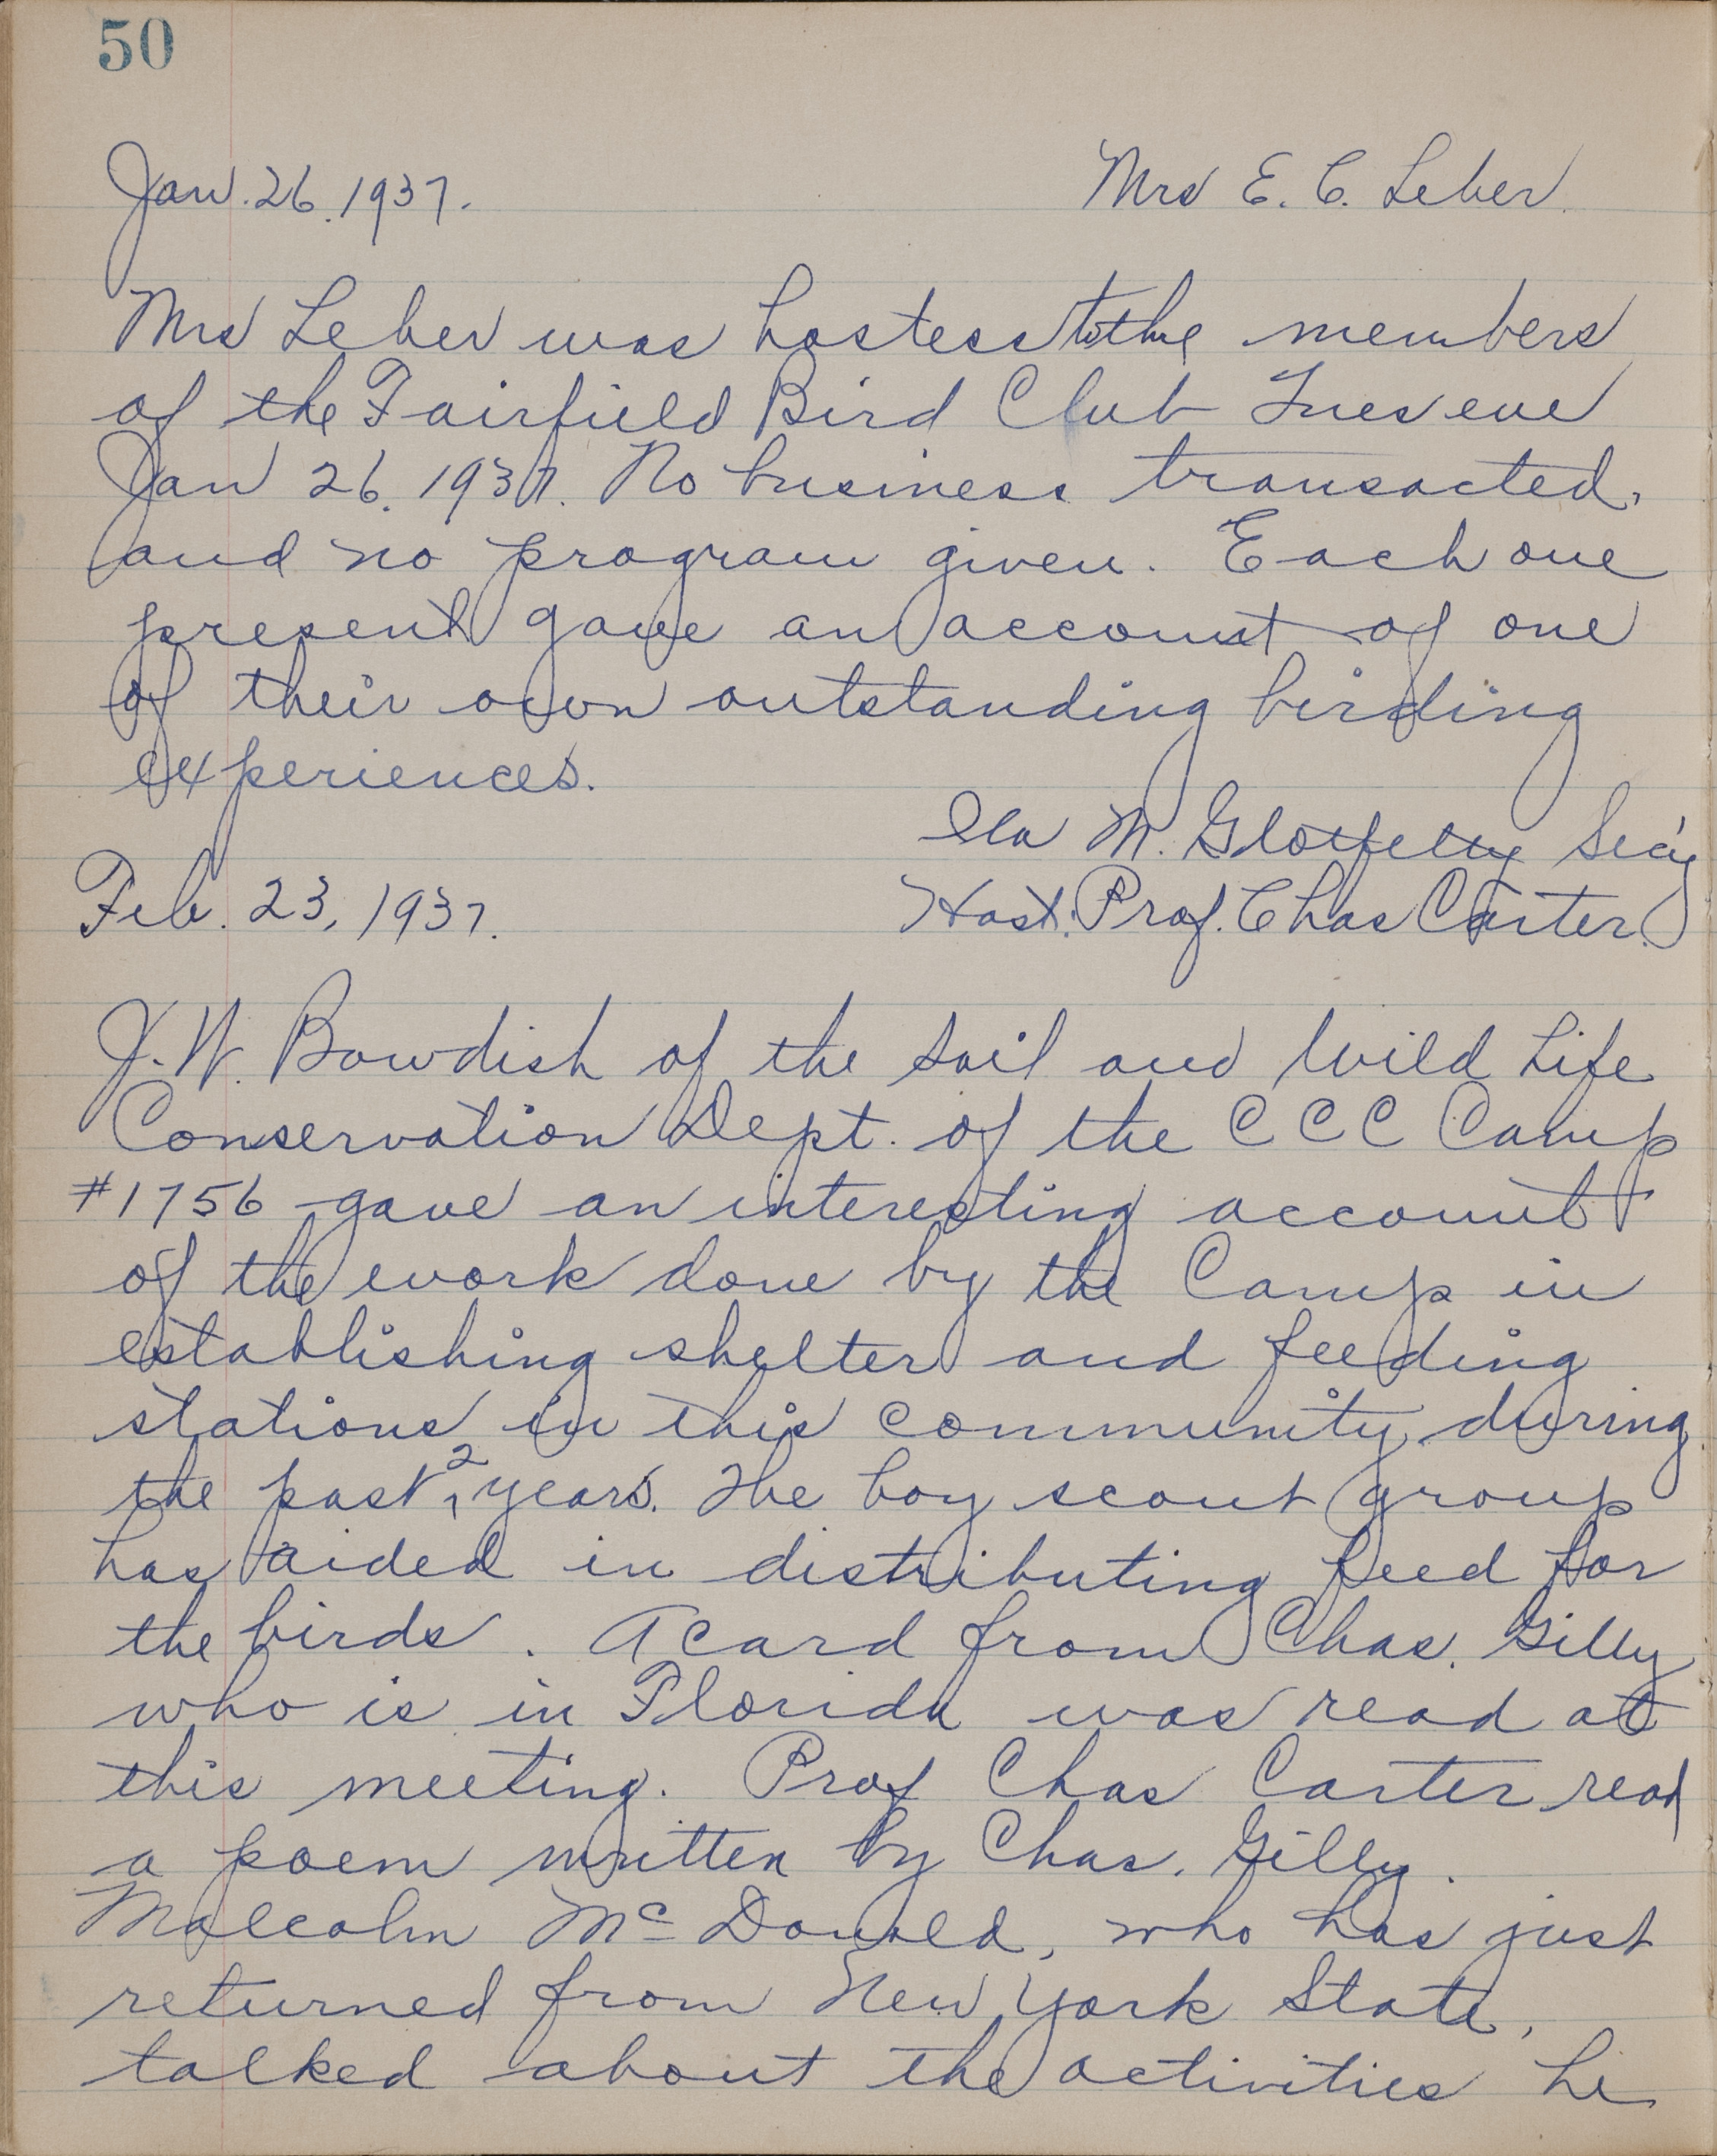 50
Jan. 26. 1937. Mrs E. C. Leber.
Mrs Leber was hostess to the members
of the Fairfield Bird Club Tues eve
Jan 26. 1937. No business transacted,
and no program given. Each one
present gave an account of one
of their own outstanding birding
experiences.
Ila M. Glotfelty Sec'y
Feb. 23, 1937. Host: Prof. Chas Carter.
J. W. Bowdish of the Soil and Wild Life
Conservation Dept. of the C C C Camp
#1756 gave an interesting account
of the work done by the Camp in
establishing shelter and feeding
stations in this community during
the past ^2 years. The boy scout group
has aided in distributing feed for
the birds. A card from Chas. Gilly
who is in Florida was read at
this meeting. Prof Chas Carter read
a poem written by Chas. Gilly.
Malcolm Mc Donald, who has just
returned from New York State,
talked about the activities he